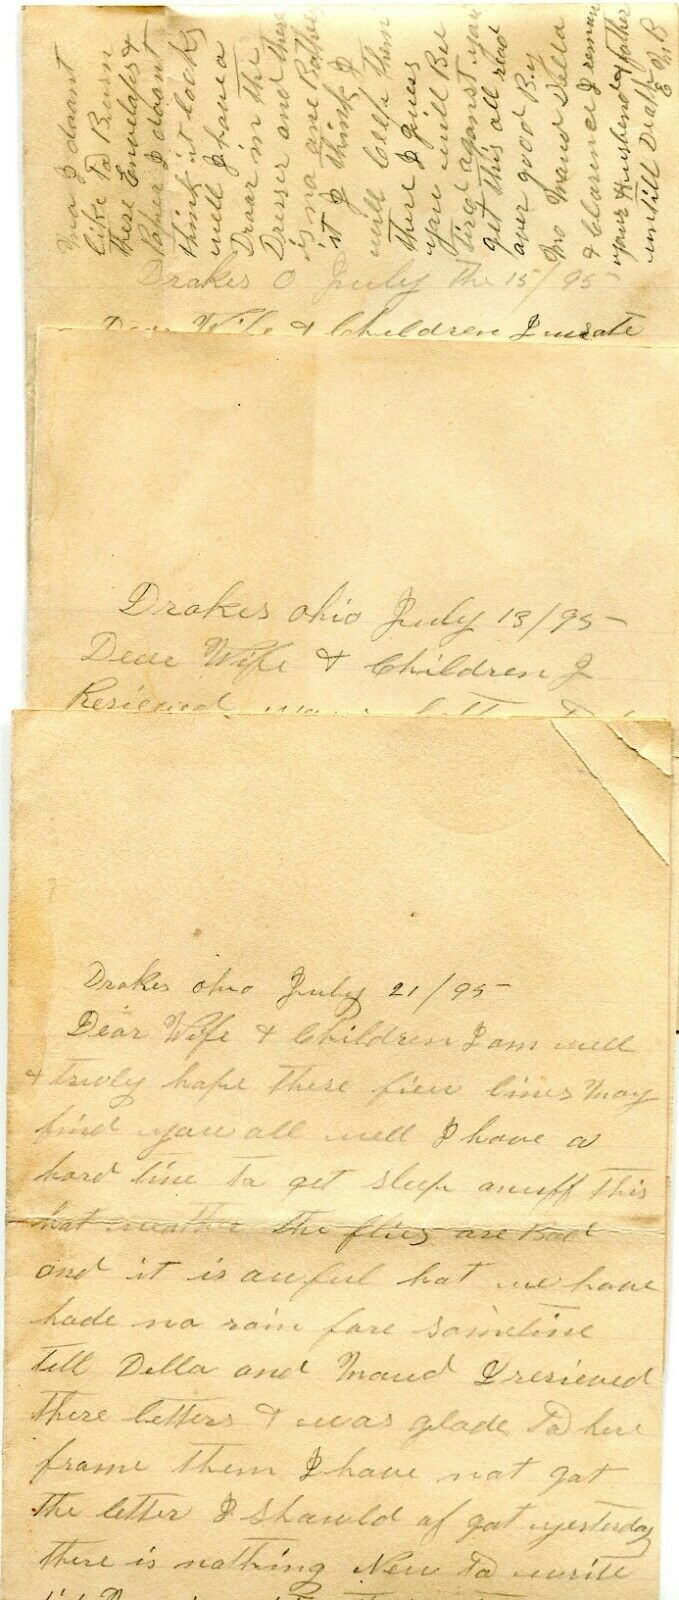 Ma I doant
like to Burn
these Envelopes &
Paper I doant
think it looks
well I have a
Draar in the
Dresser and there
is no one Bothers
it I think I
will keep them
there I guess
you will Bee
tired against you
get this all read
over good By
Mo Maud Della
& Clarence I reman
your Husbend & father
untill Death E M B
Drakes O July the 15/95
Dear Wife & Children I wrate
Drakes Ohio July 13/95
Dear Wife & Children I
Resieved your letter
Drakes Ohio July 21/95
Dear Wife & Children I am well
& truly hope these fiew lines may
find you all well I have a
hard time to get sleep anuff this
hat weather the flies are Bad
and it is auful hat we have
hade no rain fare sometime
tell Della and Maud I resieved
there letters & was glade to here
frame them I have not gat
the letter I should af gat yesterday
there is nathing New to write